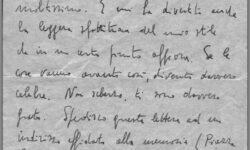 moltissimo. E mi ha divertito anche
la leggera sfottitura del mio stile
che in un certo punto affiora. Se le
cose vanno avanti così, divento davvero
celebre. Non scherzo, ti sono davvero
grato. Spedisco questa lettera ad un
indirizzo affidato alla memoria (Piazza